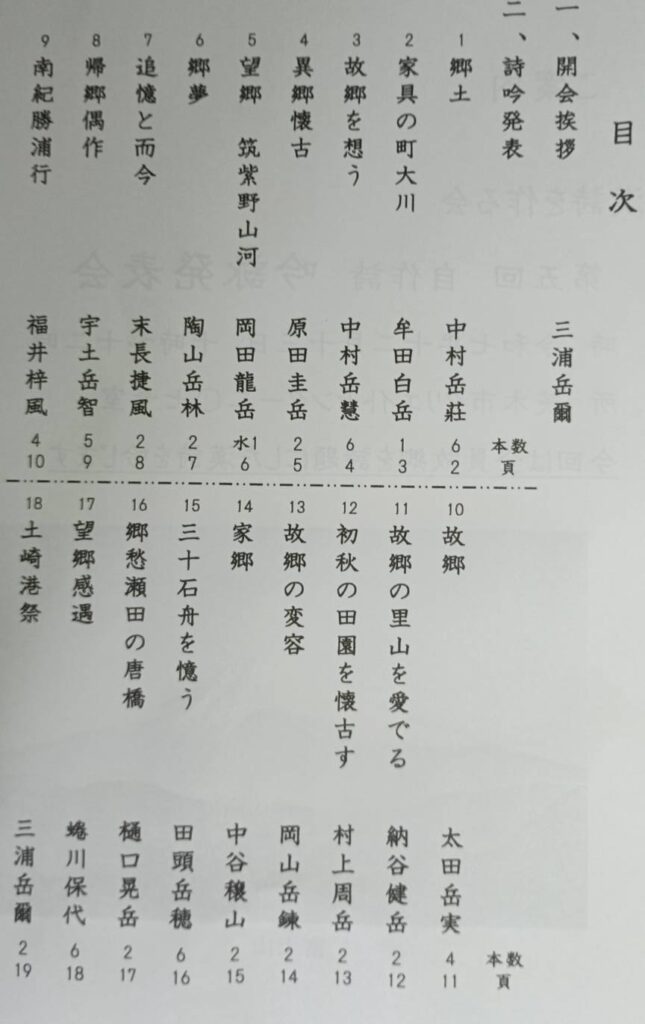 目次
一、開会挨拶 三浦岳爾
二、詩吟発表
本数 頁
1 郷土 中村岳莊 6 2
2 家具の町大川 牟田白岳 1 3
3 故郷を想う 中村岳慧 6 4
4 異郷懐古 原田圭岳 2 5
5 望郷 筑紫野山河 岡田龍岳 水1 6
6 郷夢 陶山岳林 2 7
7 追憶と而今 末長捷風 2 8
8 帰郷偶作 宇土岳智 5 9
9 南紀勝浦行 福井梓風 4 10
本数 頁
10 故郷 太田岳実 4 11
11 故郷の里山を愛でる 納谷健岳 2 12
12 初秋の田園を懐古す 村上周岳 2 13
13 故郷の変容 岡山岳錬 2 14
14 家郷 中谷穣山 2 15
15 三十石舟を憶う 田頭岳穂 6 16
16 郷愁瀬田の唐橋 樋口晃岳 2 17
17 望郷感遇 蜷川保代 6 18
18 土崎港祭 三浦岳爾 2 19